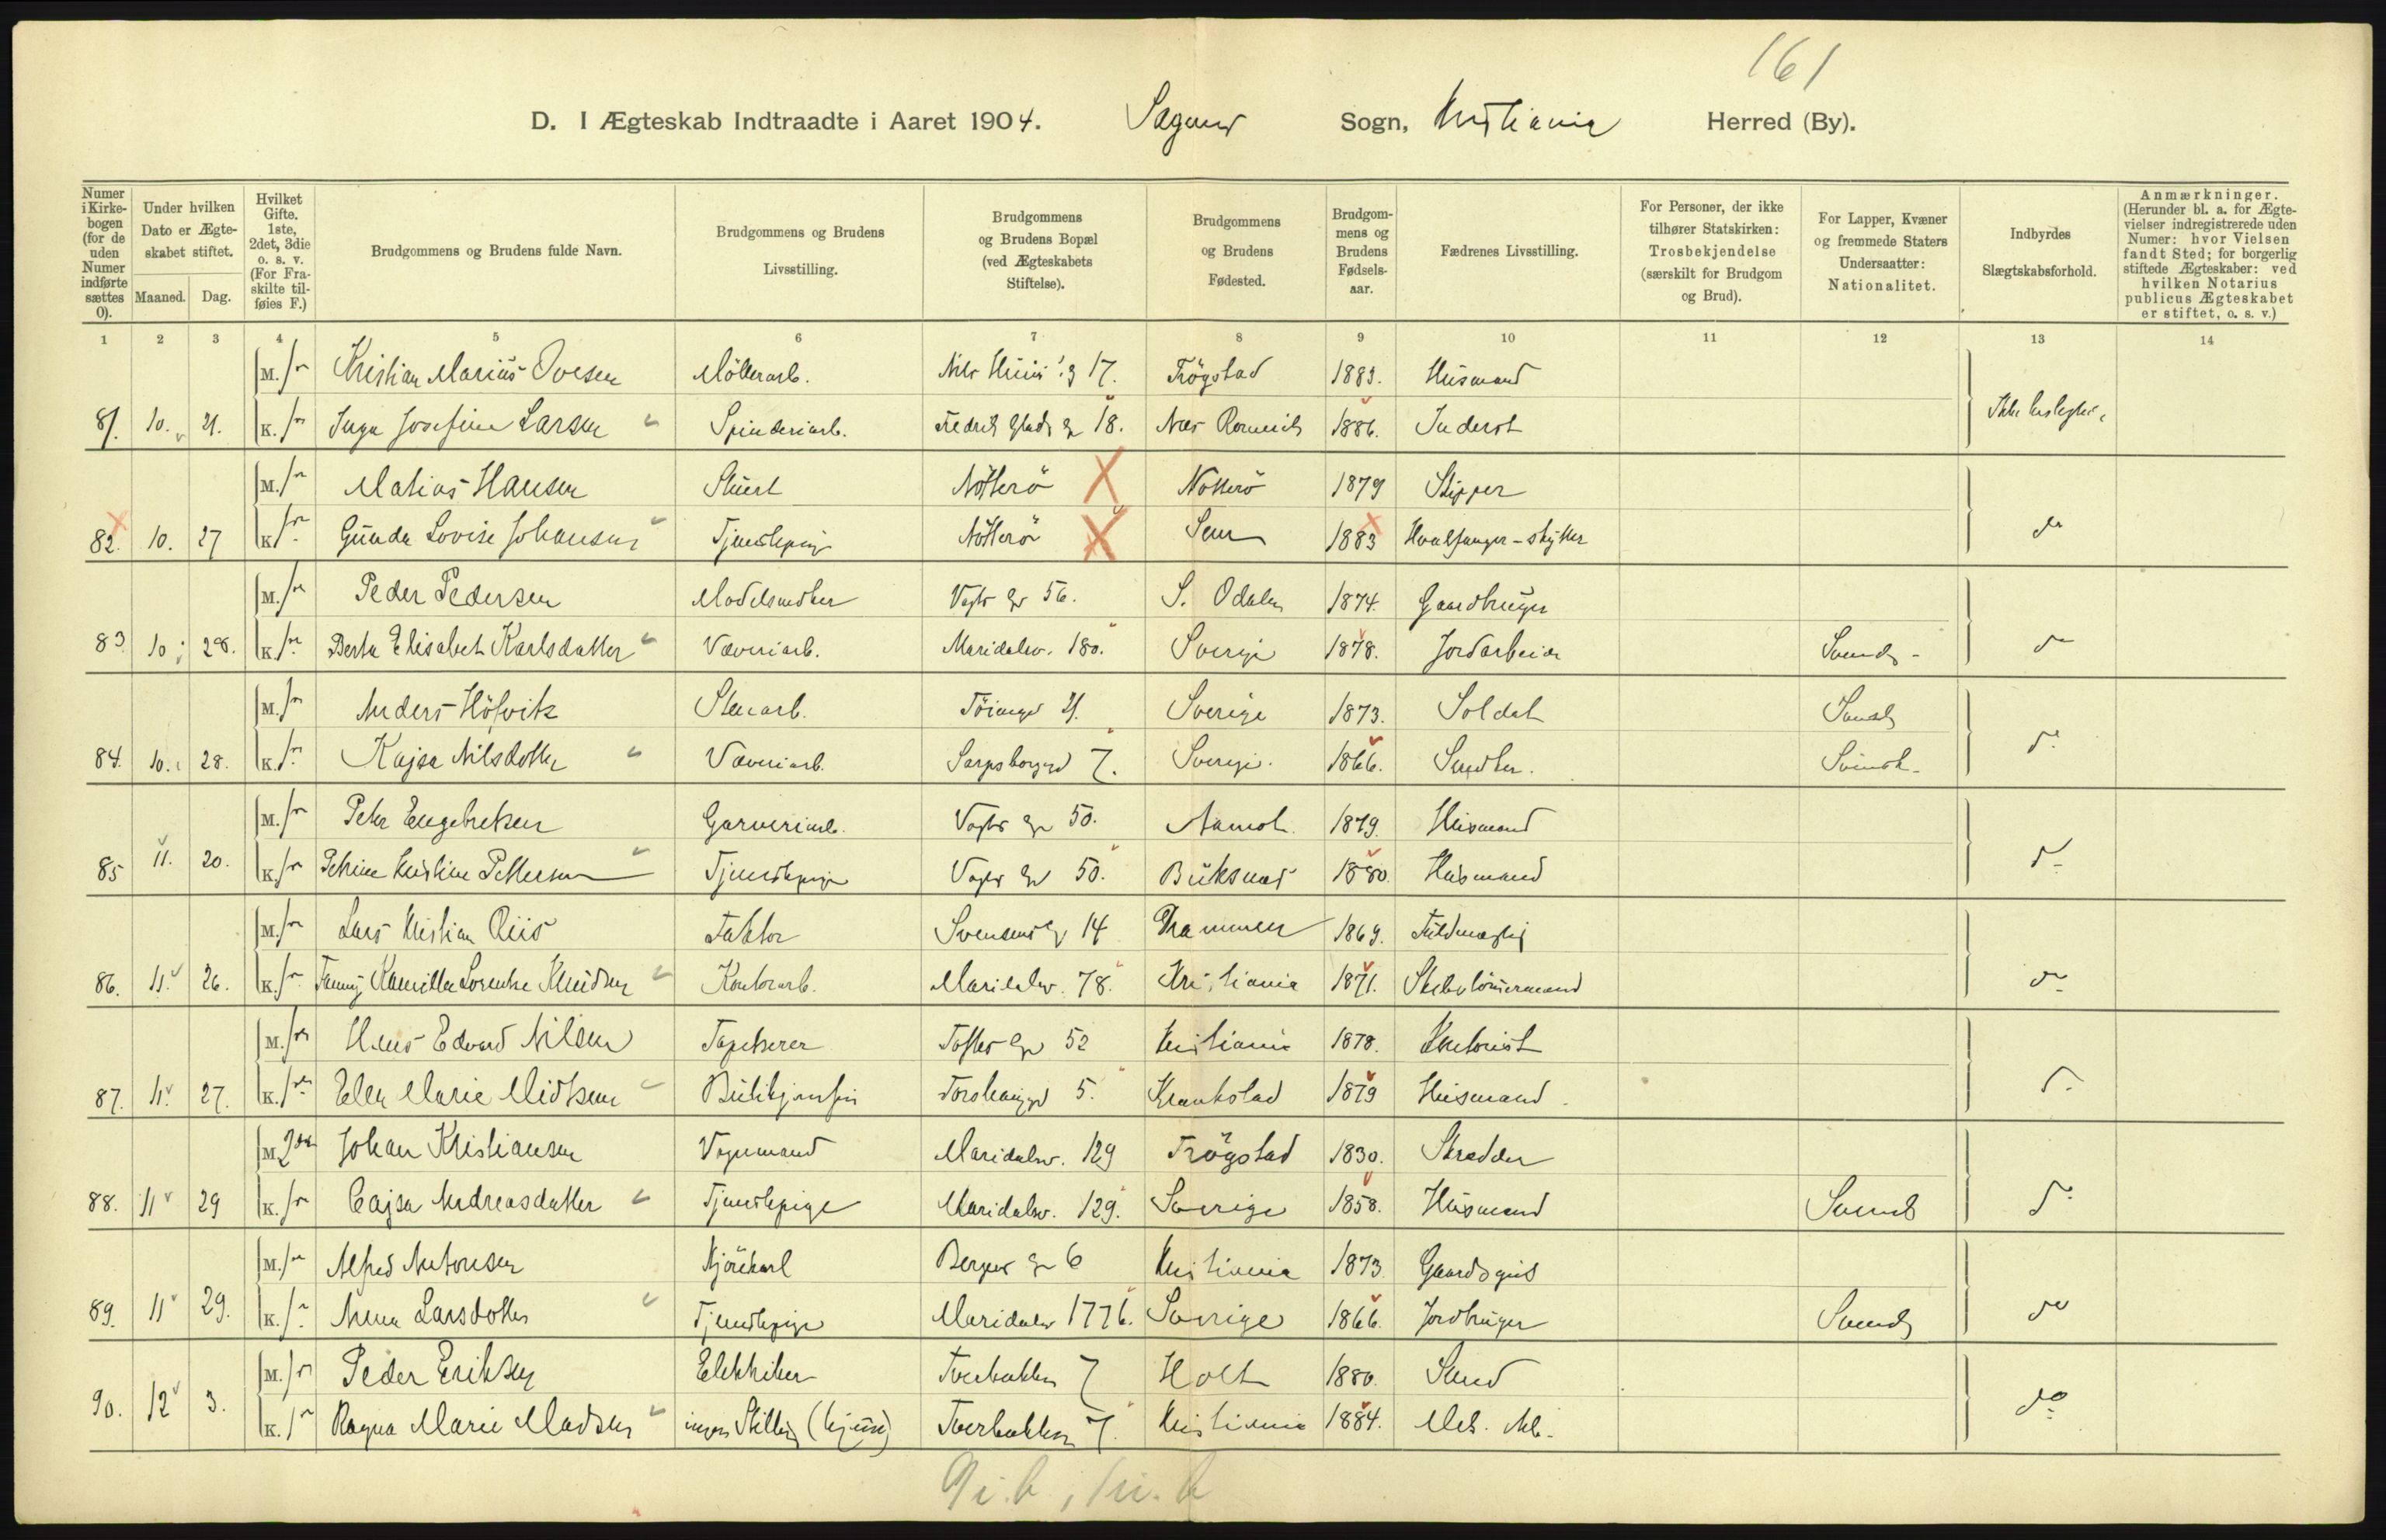 161
D. I Ægteskab Indtraadte i Aaret 1904. Sagene Sogn, Kristiania Herred (By).
Numer i Kirkebogen (for de uden Numer indførte sættes 0).
Under hvilken Dato er Ægteskabet stiftet.
Maaned. Dag.
Hvilket Gifte. 1ste, 2det, 3die o. s. v. (For Fraskilte tilføies F.)
Brudgommens og Brudens fulde Navn.
Brudgommens og Brudens Livsstilling.
Brudgommens og Brudens Bopæl (ved Ægteskabets Stiftelse).
Brudgommens og Brudens Fødested.
Brudgommens og Brudens Fødselsaar.
Fædrenes Livsstilling.
For Personer, der ikke tilhører Statskirken: Trosbekjendelse (særskilt for Brudgom og Brud).
For Lapper, Kvæner og fremmede Staters Undersaatter: Nationalitet.
Indbyrdes Slægtskabsforhold.
Anmærkninger. (Herunder bl. a. for Ægtevielser indregistrerede uden Numer: hvor Vielsen fandt Sted; for borgerlig stiftede Ægteskaber: ved hvilken Notarius publicus Ægteskabet er stiftet, o. s. v.)
1 2 3 4 5 6 7 8 9 10 11 12 13 14
M. 1ste Kristian Marius Ovesen Möllerarb. Nils Huus' g 17. Trögstad 1883. Husmand
81. 10. 21. K. 1ste Inga Josefine Larsen Spinderiarb. Fredrik Glads g 18. Nes Romerik 1886. Inderst Ikke beslegtet
M. 1ste Matias Hansen Stuert Nötterö Nötterö 1879 Skipper
82. 10. 27 K. 1ste Gunda Lovise Johansen Tjenestepige Nötterö Sem 1883 Hvalfanger-skytter do
M. 1ste Peder Pedersen Modelsnedker Vogts gd 56. S. Odalen 1874. Gaardbruger
83. 10. 28. K. 1ste Berta Elisabet Karlsdatter Væveriarb. Maridalsv. 180. Sverige 1878. Jordarbeider Svensk do
M. 1ste Anders Höfvitz Stenarb. Töiengd 21. Sverige 1873. Soldat Svensk
84. 10. 28. K. 1ste Kajsa Nilsdotter Væveriarb. Sarpsborggd 7. Sverige. 1866. Snedker. Svensk do
M. 1ste Peter Engebretsen Garveriarb. Vogts gd 50. Aamot. 1879. Husmand
85 11. 20. K. 1ste Petrine Kristine Pettersen Tjenestepige Vogts gd 50. Buksnes 1880. Husmand do
M. 1ste Lars Kristian Riis Faktor Svensens g 14 Drammen 1869. Fuldmægtig
86. 11. 26. K. 1ste Fanny Kamilla Lorentze Knudsen Kontorarb. Maridalsv. 78. Kristiania 1871. Skibstömmermand do
M. 1ste Hans Edvard Nilsen Tapetserer Toftes gd 52 Kristiania 1878. Kontorist
87. 11. 27. K. 1ste Elen Marie Midtsem Butikjomfru Torshauggd 5. Krankstad 1879 Husmand. do
M. 2den Johan Kristiansen Vognmand Maridalsv. 129 Trögstad 1830. Skrædder
88. 11 29 K. 1ste Cajsa Andreasdatter Tjenestepige Maridalsv. 129. Sverige 1858. Husmand Svensk do
M. 1ste Alfred Antonsen Kjörekarl Bergs gd 6 Kristiania 1873. Gaardsgut
89. 11 29. K. 1ste Anna Larsdotter Tjenestepige Maridalsv 177b. Sverige 1866. Jordbruger Svensk do
M. 1ste Peder Eriksen Elektriker Tverbakken 7 Holt 1880. Smed
90. 12 3. K. 1ste Ragna Marie Madsen ingen Stilling (hjem) Tverbakken 7. Kristiania 1884. Mek. Arb. do